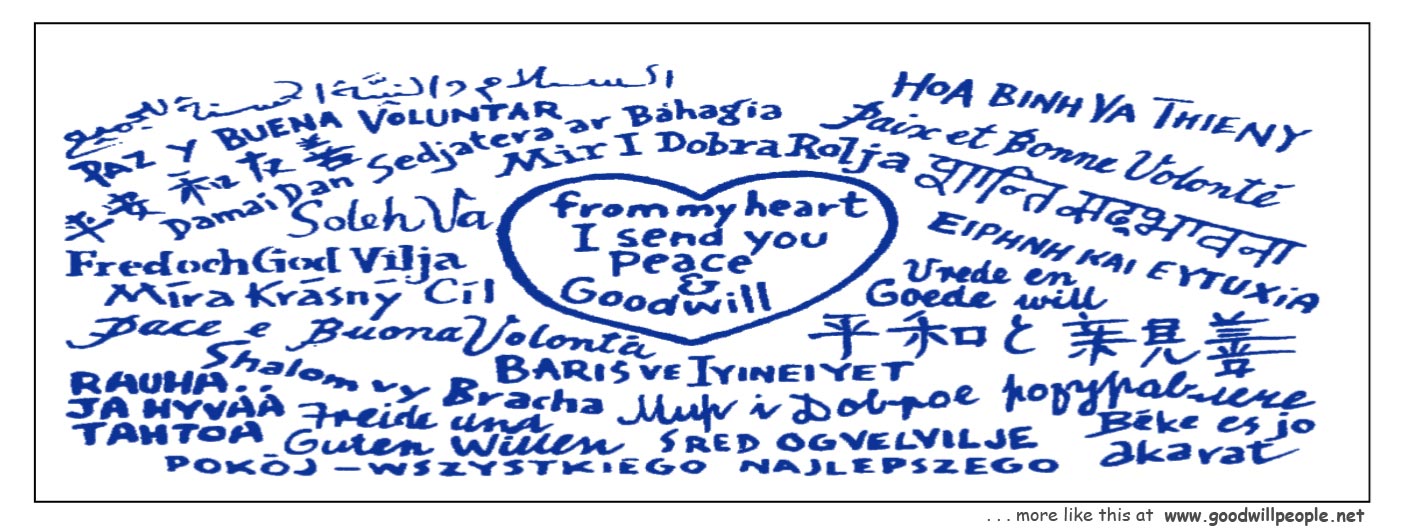 السلام والنية الحسنة للجميع
PAZ Y BUENA VOLUNTAR
平安和松善
Damai Dan Sedjatera ar Báhagia
Mir I Dobra Rolja
Soleh Va
Fred och God Vilja
Míra Krásný Cíl
Pace e Buona Volontà
Shalom vy Bracha
RAUHA..
JA HYVÄÄ
TAHTOA
Freide und
Guten Willen
POKÓJ – WSZYSTKIEGO NAJLEPSZEGO
from my heart
I send you
Peace
&
Goodwill
BARIS VE IYINEIYET
HOA BINH VA THIENY
Paix et Bonne Volonté
EIPHNH KAI EYTUXiA
Vrede en
Goede will
平和と親善
Мир і Доброе
SRED OGVELVILJE
Béke es jo
akarat
. . . more like this at www.goodwillpeople.net